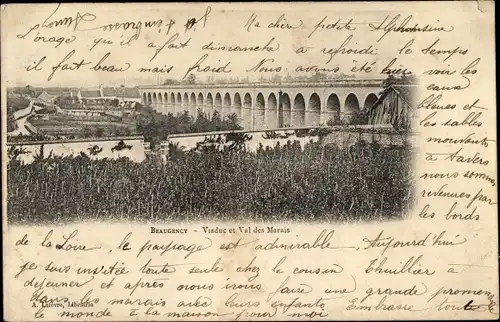 Ma chère petite Alphonsine
L'orage qu'il a fait dimanche a refroidi le temps
il fait beau mais froid. Nous avons été hier voir les
sables
bleues et
les sables
mouvants
à travers
nous sommes
revenues par
les bords
BEAUGENCY - Viaduc et Val des Marais
de la Loire, le paysage est admirable. Aujourd'hui
je suis invitée toute seule chez le cousin Thuillier à
déjeuner et après nous irons faire une grande promenade
dans les marais avec leurs enfants Embrasse tout
le monde à la maison pour moi
A. Lefèvre, Libraire